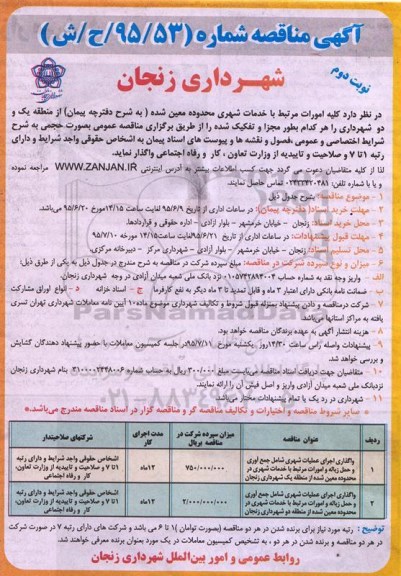 آگهی مناقصه شماره (۹۵/۵۳/ح/ش)
نوبت دوم
شهرداری زنجان
در نظر دارد کلیه امورات مرتبط با خدمات شهری محدوده معین شده ( به شرح دفترچه پیمان) از منطقه یک و
دو شهرداری را هر کدام بطور مجزا و تفکیک شده را از طریق برگزاری مناقصه عمومی بصورت حجمی به شرح
شرایط اختصاصی و عمومی ،فصول و نقشه ها و پیوست های اسناد پیمان به اشخاص حقوقی واجد شرایط و دارای
رتبه ۱تا ۷ و صلاحیت و تاییدیه از وزارت تعاون ، کار و رفاه اجتماعی واگذار نماید.
لذا از کلیه متقاضیان دعوت می گردد جهت کسب اطلاعات بیشتر به آدرس اینترنتی WWW.ZANJAN.IR مراجعه نموده
و یا با شماره تلفن: تماس حاصل نمایند.
۱ - موضوع مناقصه: بشرح جدول ذیل
۲ - مهلت خرید اسناد(دفترچه پیمان): در ساعات اداری از تاریخ ۹۵/۶/۹ لغایت ساعت ۱۴/۱۵مورخ ۹۵/۶/۲۰ می باشد.
۳ - محل خرید اسناد: زنجان - خیابان خرمشهر - بلوار آزادی - اداره حقوقی و قراردادها.
۴ - مهلت قبول پیشنهادات: در ساعات اداری از تاریخ ۹۵/۶/۲۱لغایت ساعت۱۴/۱۵ مورخه ۹۵/۷/۱۰
۵ - محل تسلیم اسناد: زنجان - خیابان خرمشهر - بلوار آزادی - شهرداری مرکز - دبیرخانه مرکزی.
۶ - میزان و نوع سپرده شرکت در مناقصه: مبلغ سپرده شرکت در مناقصه به شرح مندرج در جدول ذیل به یکی از طرق ذیل:
الف - واریز وجه نقد به شماره حساب ۰۱۰۵۷۴۲۸۹۴۰۰۴ نزد بانک ملی شعبه میدان آزادی در وجه شهرداری زنجان.
ب - ضمانت نامه بانکی دارای اعتبار ۳ ماه و قابل تمدید تا ۳ ماه دیگر به نفع کارفرما ج - اسناد خزانه د - انواع اوراق مشارکت
۷ - شرکت درمناقصه و دادن پیشنهاد بمنزله قبول شروط و تکالیف شهرداری موضوع ماده۱۰ آیین نامه معاملات شهرداری تهران تسری
یافته به مراکز استانها می‌باشد.
۸ - هزینه انتشار آگهی به عهده برندگان مناقصه خواهد بود.
۹ - پیشنهادات واصله راس ساعت ۱۴/۳۰روز یکشنبه مورخ ۹۵/۷/۱۱در جلسه کمیسیون معاملات با حضور پیشنهاد دهندگان گشایش
و بررسی خواهد شد.
۱۰ - متقاضیان جهت دریافت اسناد مناقصه می‌بایست مبلغ ۳۰۰/۰۰۰ ریال به حساب شماره بنام شهرداری زنجان
نزدبانک ملی شعبه میدان آزادی واریز و اصل فیش آن را ارائه نمایند.
۱۱ - شهرداری در رد یک یا تمام پیشنهادات مختار می‌باشد.
• سایر شروط مناقصه و اختیارات و تکالیف مناقصه گر و مناقصه گزار در اسناد مناقصه مندرج می‌باشد.•
ردیف عنوان مناقصه میزان سپرده شرکت در مناقصه بریال مدت اجرای کار شرکتهای صلاحیتدار
۱ واگذاری اجرای عملیات شهری شامل جمع آوری و حمل زباله و امورات مرتبط با خدمات شهری در محدوده معین شده از منطقه یک شهرداری زنجان ۷۵۰/۰۰۰/۰۰۰ ۱۲ماه اشخاص حقوقی واجد شرایط و دارای رتبه ۱تا ۷ و صلاحیت و تاییدیه از وزارت تعاون، کار و رفاه اجتماعی
۲ واگذاری اجرای عملیات شهری شامل جمع آوری و حمل زباله و امورات مرتبط با خدمات شهری در محدوده معین شده از منطقه دو شهرداری زنجان ۲/۰۰۰/۰۰۰/۰۰۰ ۱۲ماه اشخاص حقوقی واجد شرایط و دارای رتبه ۱تا ۷ و صلاحیت و تاییدیه از وزارت تعاون، کار و رفاه اجتماعی
توضیح : رتبه مورد نیاز برای برنده شدن در هر دو مناقصه (بصورت توامان )۱ تا ۶ می باشد و شرکت های دارای رتبه ۷ در صورت شرکت
در هر دو مناقصه و برنده شدن در هر دو ، به تشخیص کمیسیون معاملات در یک مورد بعنوان برنده معرفی خواهند شد.
روابط عمومی و امور بین‌الملل شهرداری زنجان